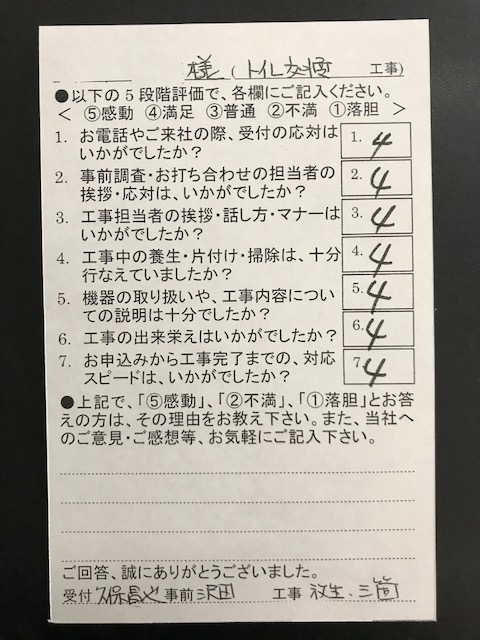 様 (トイレ交換 工事)
●以下の5段階評価で、各欄にご記入ください。
< ⑤感動 ④満足 ③普通 ②不満 ①落胆 >
1. お電話やご来社の際、受付の応対は
いかがでしたか?
1. 4
2. 事前調査・お打ち合わせの担当者の
挨拶・応対は、いかがでしたか?
2. 4
3. 工事担当者の挨拶・話し方・マナーは
いかがでしたか?
3. 4
4. 工事中の養生・片付け・掃除は、十分
行なえていましたか?
4. 4
5. 機器の取り扱いや、工事内容につい
ての説明は十分でしたか?
5. 4
6. 工事の出来栄えはいかがでしたか?
6. 4
7. お申込みから工事完了までの、対応
スピードは、いかがでしたか?
7. 4
●上記で、「⑤感動」、「②不満」、「①落胆」とお答
えの方は、その理由をお教え下さい。また、当社
へのご意見・ご感想等、お気軽にご記入下さい。
ご回答、誠にありがとうございました。
受付 久保昌也 事前 沢田 工事